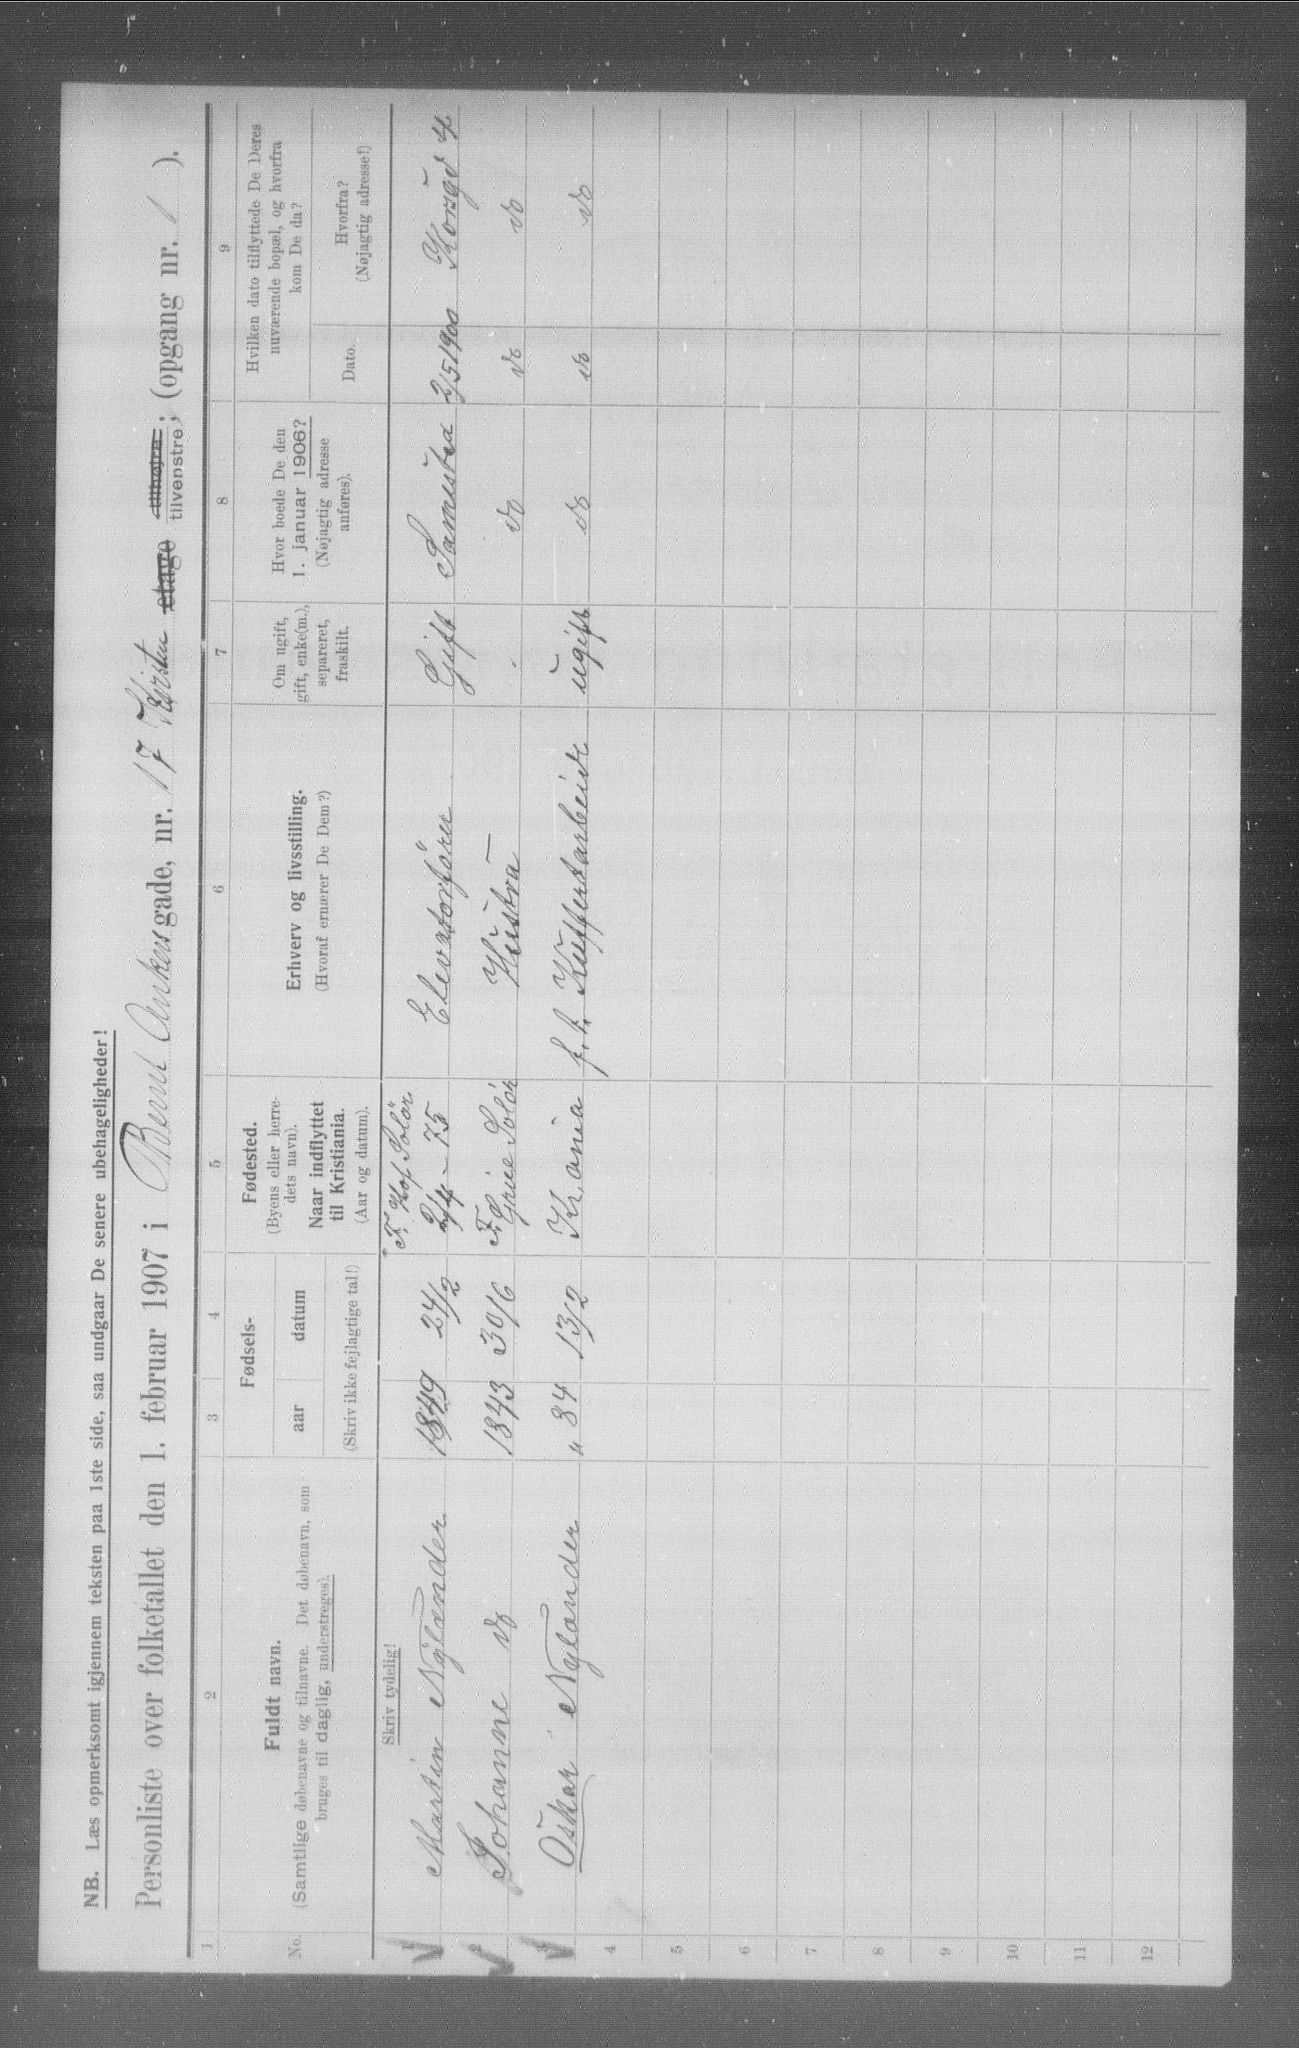 NB. Læs opmerksomt igjennem teksten paa 1ste side, saa undgaar De senere ubehageligheder!
Personliste over folketallet den 1. februar 1907 i Bernt Ankers gade, nr. 17 etage tilhøjre tilvenstre; (opgang nr. 1 ).
1 2 3 4 5 6 7 8 9
No.
Fuldt navn.
(Samtlige døbenavne og tilnavne. Det døbenavn, som
bruges til daglig, understreges).
Fødsels-
aar datum
(Skriv ikke fejlagtige tal!)
Fødested.
(Byens eller herre-
dets navn).
Naar indflyttet
til Kristiania.
(Aar og datum).
Erhverv og livsstilling.
(Hvoraf ernærer De Dem?)
Om ugift,
gift, enke(m.),
separeret,
fraskilt.
Hvor boede De den
1. januar 1906?
(Nøjagtig adresse
anføres).
Hvilken dato tilflyttede De Deres
nuværende bopæl, og hvorfra
kom De da?
Dato.
Hvorfra?
(Nøjagtig adresse!)
Skriv tydelig!
1 Martin Nylander 1849 24/2 F. Hof Solör 2/4 - 75 Elevatorförer Gift Samested 2/5 1900 Korsgd 4
2 Johanne do 1843 30/6 F. Grue Solör Hustru do do do
3 Oskar Nylander " 84 13/2 Kr.ania f.h. Kuffertarbeider ugift do do do
4
5
6
7
8
9
10
11
12